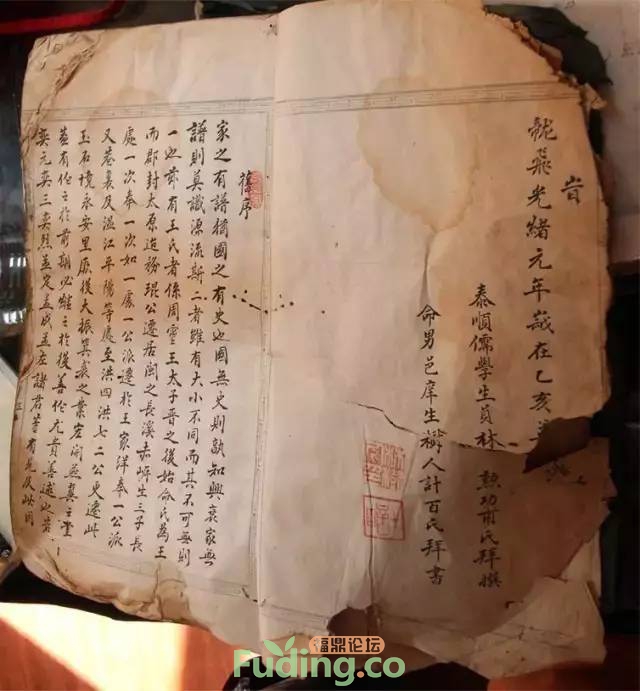 旹
龍飛光緒元年歲在乙亥
泰順儒學生員林 勲功甫氏拜撰
命男邑庠生樹人計百氏拜書
序
家之有譜猶國之有史也國無史則孰知興衰家無
譜則莫識源流斯二者雖有大小不同而其不可無則
一也茲有王氏者係周靈王太子晉之後始命氏為王
而郡封太原迨琨公遷居閩之長溪赤岈生三子長
處一次奉一次如一處一公派遷於王家洋奉一公派
又卷裏及溫江平陽等處至洪四洪七二公更遷此
玉石境永安里厥後大振箕裘之業宏開燕翼之堂
蓋有作之於前期必継之於後善作尤貴善述也茲
奕元奕三奕然孟定孟成孟諸君等有光及此因
福鼎论坛
Fuding.co